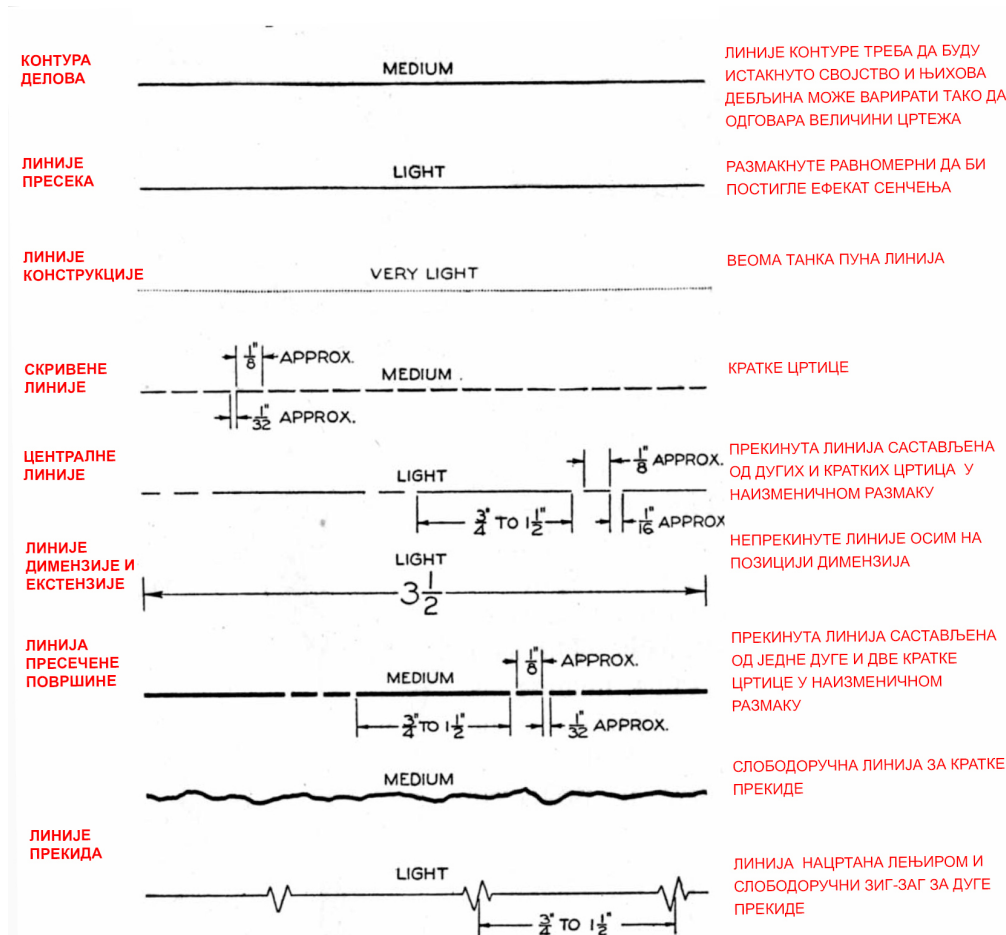 КОНТУРА
ДЕЛОВА
MEDIUM
ЛИНИЈЕ КОНТУРЕ ТРЕБА ДА БУДУ
ИСТАКНУТО СВОЈСТВО И ЊИХОВА
ДЕБЉИНА МОЖЕ ВАРИРАТИ ТАКО ДА
ОДГОВАРА ВЕЛИЧИНИ ЦРТЕЖА
ЛИНИЈЕ
ПРЕСЕКА
LIGHT
РАЗМАКНУТЕ РАВНОМЕРНИ ДА БИ
ПОСТИГЛЕ ЕФЕКАТ СЕНЧЕЊА
ЛИНИЈЕ
КОНСТРУКЦИЈЕ
VERY LIGHT
ВЕОМА ТАНКА ПУНА ЛИНИЈА
СКРИВЕНЕ
ЛИНИЈЕ
1/8" APPROX.
MEDIUM .
1/32" APPROX.
КРАТКЕ ЦРТИЦЕ
ЦЕНТРАЛНЕ
ЛИНИЈЕ
LIGHT
1/8" APPROX.
3/4" TO 1 1/2"
1/16" APPROX
ПРЕКИНУТА ЛИНИЈА САСТАВЉЕНА
ОД ДУГИХ И КРАТКИХ ЦРТИЦА У
НАИЗМЕНИЧНОМ РАЗМАКУ
ЛИНИЈЕ
ДИМЕНЗИЈЕ И
ЕКСТЕНЗИЈЕ
LIGHT
3 1/2
НЕПРЕКИНУТЕ ЛИНИЈЕ ОСИМ НА
ПОЗИЦИЈИ ДИМЕНЗИЈА
ЛИНИЈА
ПРЕСЕЧЕНЕ
ПОВРШИНЕ
1/8" APPROX.
MEDIUM
3/4" TO 1 1/2"
1/32" APPROX.
ПРЕКИНУТА ЛИНИЈА САСТАВЉЕНА
ОД ЈЕДНЕ ДУГЕ И ДВЕ КРАТКЕ
ЦРТИЦЕ У НАИЗМЕНИЧНОМ
РАЗМАКУ
MEDIUM
СЛОБОДОРУЧНА ЛИНИЈА ЗА КРАТКЕ
ПРЕКИДЕ
ЛИНИЈЕ
ПРЕКИДА
LIGHT
3/4" TO 1 1/2"
ЛИНИЈА НАЦРТАНА ЛЕЊИРОМ И
СЛОБОДОРУЧНИ ЗИГ-ЗАГ ЗА ДУГЕ
ПРЕКИДЕ